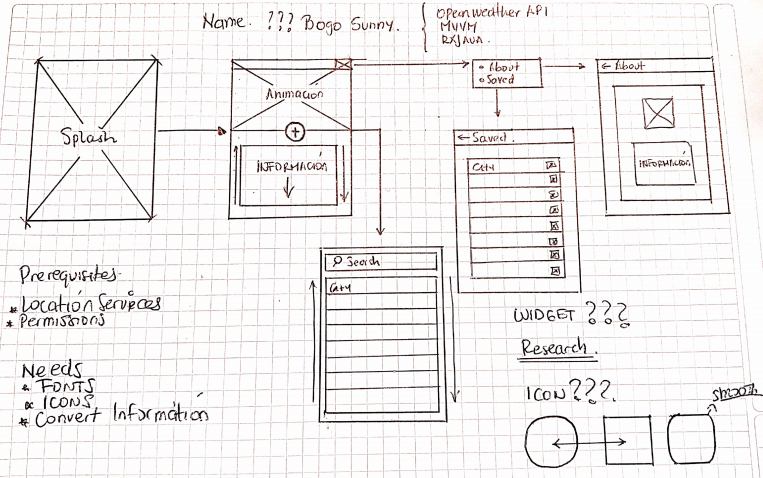 Name. ??? Bogo Sunny.
Openweather API
MVVM
RXJAVA.
Splash
Animacion
INFORMACIÓN
• About
• Saved
← About
INFORMACIÓN
← Saved.
City
Search
City
Prerequisites
* Location Services
* Permissions
Needs
* FONTS
* ICONS
* Convert Información
WIDGET ???
Research.
ICON ???.